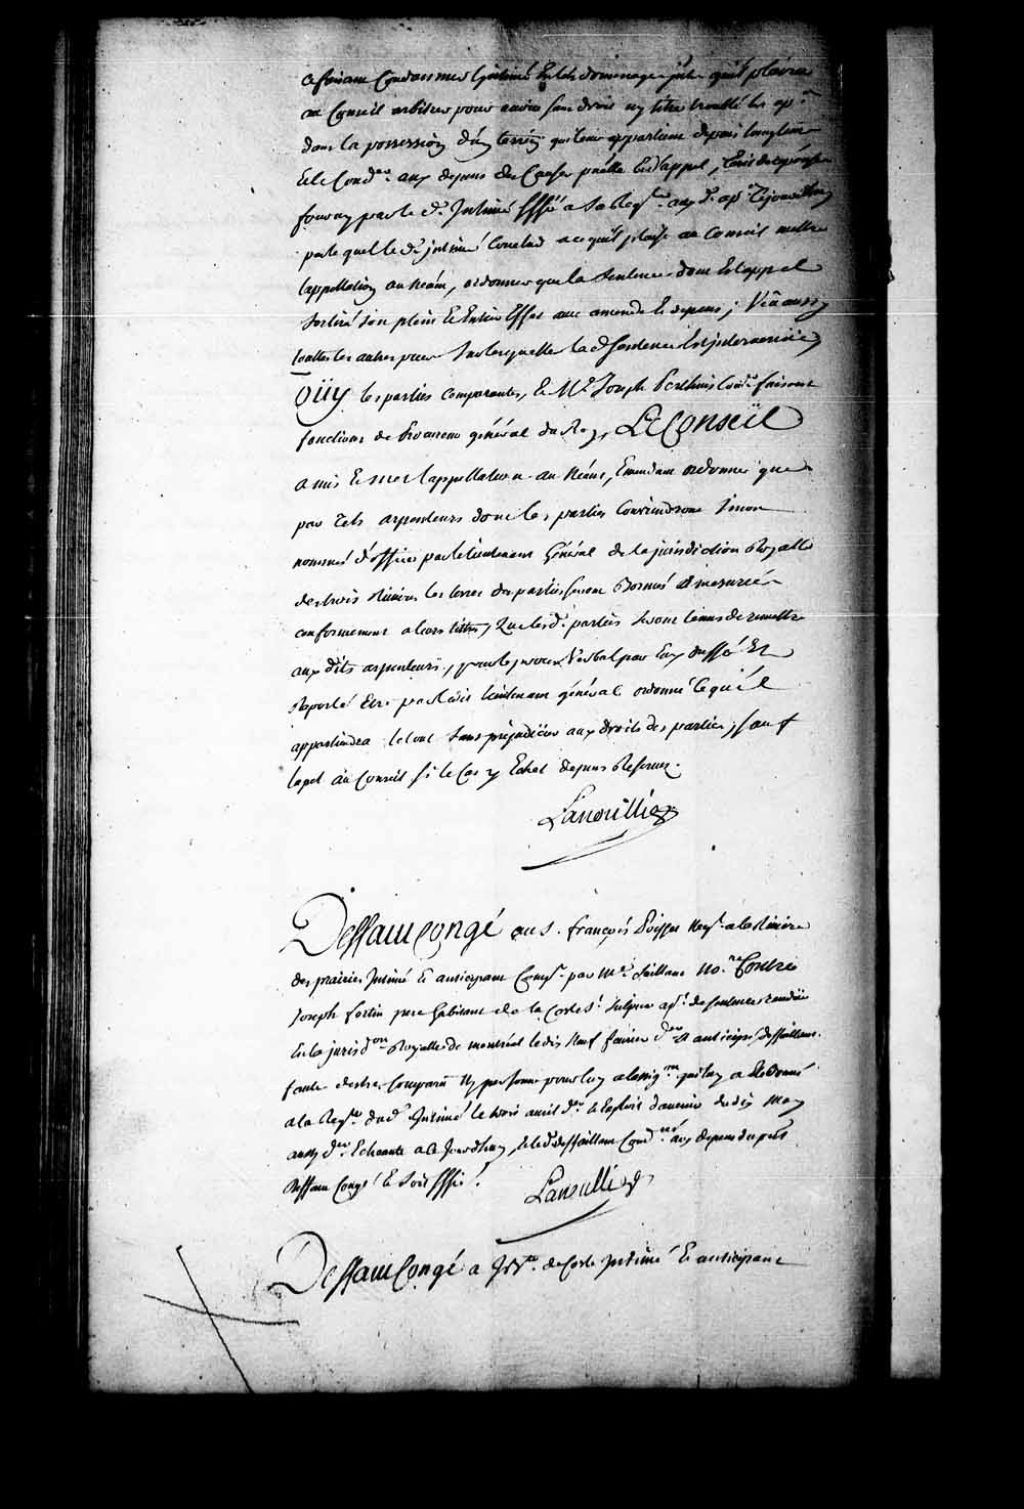 ce faisant Condamner l'intimé en tels dommages jnt. qu'il plaira
au Conseil arbitrer pour avoir sans droit ny titre troublé les ap.t
dans la possession d'un terrein qui leur appartient depuis longtems
et le Cond.er aux depens des Causes p.ales et d'appel,
fourny par le d. Intimé signiffié a la Req.te aux d. ap.t Cejourdhuy
par lequel le d. jntimé Conclud a ce qu'il plaise au Conseil mettre
l'appellation au Neant, ordonner que la Sentence dont Est appel
Sortira son plein et Entier Effet avec amende et depens; Vû aussy
touttes les autres pieces Sur lesquelles la d. Sentence Est jntervenüe
Oüy les parties comparantes, et M.e Joseph Perthuis Con.er faisant
fonctions de Procureur général du Roy, Le Conseil
a mis et met l'appellation au Néant, Emendant ordonne que
par tels arpenteurs dont les parties Conviendront Sinon
nommés d'office par le lieutenant Général de la jurisdiction Royalle
des trois Rivieres les terres des parties seront Bornées et mesurées
conformement a leurs titres, Que les d. parties seront tenus de remettre
aux dits arpenteurs, pour le procès Verbal par Eux dressé Et
Raporté Etre par le dit lieutenant général ordonné ce qu'il
appartiendra le tout Sans préjudicier aux droits des parties, sauf
lapel au Conseil si le Cas y Echet depens Reservez.
Lanoüillier
Deffaut Congé au S. françois Poisset Neg.t a la Riviere
des prairies Intimé et anticipant Comp.t par M.e Saillant No.re Contre
Joseph fortin pere habitant de la Coste S.t Sulpice ap.t de sentence rendüe
En la jurisd.on Royalle de montréal le dix Neuf fevrier d.er et anticipé, deffaillant
faute d'estre Comparü Ny personne pour luy a l'assig.on qui luy a Eté Donné
a la Req.te du d. Intimé le trois avril d.er et Exploit d'avenir du dix May
aussy d.er Echeante a Ce Jourdhuy, et le d. deffaillant Cond.né aux depens du p.nt
Deffaut Congé et Soit Signiffié.
Lanoüillier
Deffaut Congé a de Coste Intimé et anticipant